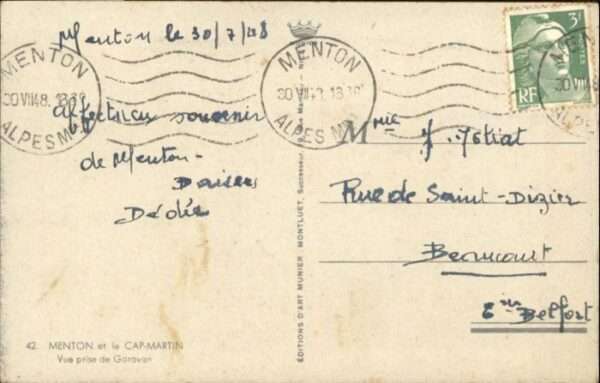 Menton le 30/7/48
MENTON
30 VII 48. 13.30
ALPES M
MENTON
30 VII 48. 13.30
ALPES M
3F
RF
Affectueux souvenir
de Menton-
Baisers
Dédée
Rue de Saint-Dizier
Beaucourt
Belfort
EDITIONS D'ART MUNIER - MONTLUET, Successeur
42. MENTON et le CAP-MARTIN
Vue prise de Garavan